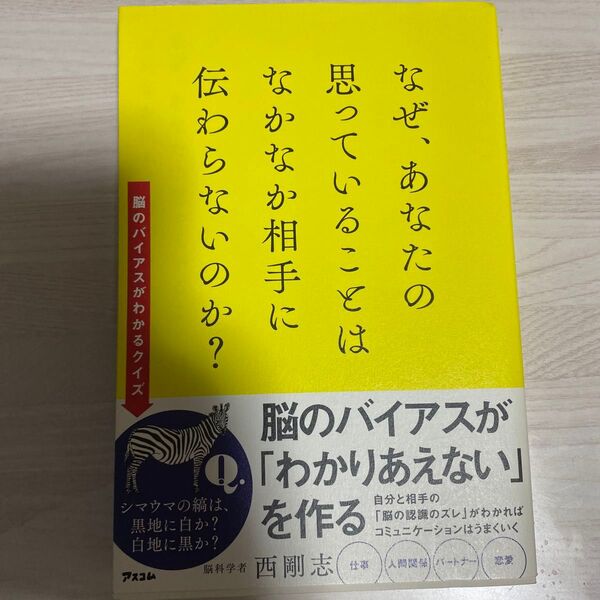 なぜ、あなたの
思っていることは
なかなか相手に
伝わらないのか？
脳のバイアスがわかるクイズ
脳のバイアスが
「わかりあえない」
を作る
自分と相手の
「脳の認識のズレ」がわかれば
コミュニケーションはうまくいく
Q.
シマウマの縞は、
黒地に白か？
白地に黒か？
脳科学者 西剛志
仕事
人間関係
パートナー
恋愛
アスコム